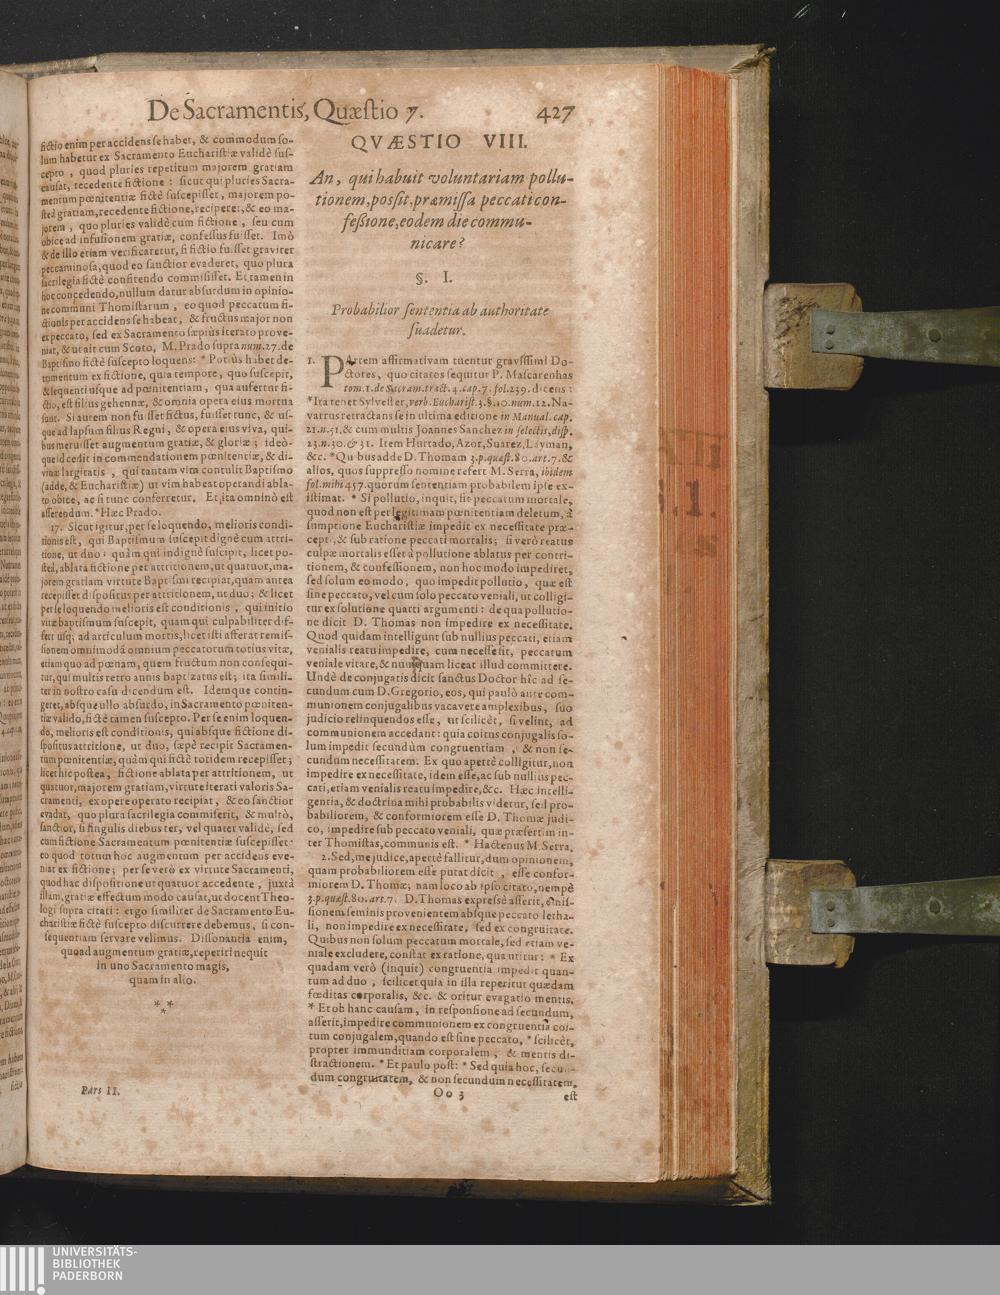 De Sacramentis, Quæstio 7. 427
fictio enim per accidens se habet, & commodum so-
lum habetur ex Sacramento Eucharistiæ validè sus-
cepto, quod pluries repetitum majorem gratiam
causat, recedente fictione: sicut qui pluries Sacra-
mentum pœnitentiæ fictè suscepisset, majorem po-
steà gratiam, recedente fictione, reciperet, & eo ma-
jorem, quo pluries validè cum fictione, seu cum
obice ad infusionem gratiæ, confessus fuisset. Imò
& de illo etiam verificaretur, si fictio fuisset graviter
peccaminosa, quod eo sanctior evaderet, quo plura
sacrilegia fictè confitendo commisisset. Et tamen in
hoc concedendo, nullum datur absurdum in opinio-
ne communi Thomistarum, eo quod peccatum fi-
ctionis per accidens se habeat, & fructus major non
ex peccato, sed ex Sacramento sæpiùs iterato prove-
niat, & ut ait cum Scoto, M. Prado supra num. 27. de
Baptismo fictè suscepto loquens: * Potiùs habet de-
trimentum ex fictione, quia tempore, quo suscepit,
& sequenti usque ad pœnitentiam, qua aufertur fi-
ctio, est filius gehennæ, & omnia opera ejus mortua
sunt. Si autem non fuisset fictus, fuisset tunc, & us-
que ad lapsum filius Regni, & opera ejus viva, qui-
bus meruisset augmentum gratiæ, & gloriæ; ideò-
que id cedit in commendationem pœnitentiæ, & di-
vinæ largitatis, qui tantam vim contulit Baptismo
(adde, & Eucharistiæ) ut vim habeat operandi abla-
to obice, ac si tunc conferretur. Et, ita omninò est
asserendum. * Hæc Prado.
17. Sicut igitur, per se loquendo, melioris condi-
tionis est, qui Baptismum suscepit dignè cum attri-
tione, ut duo: quàm qui indignè suscipit, licet po-
steà, ablata fictione per attritionem, ut quatuor, ma-
jorem gratiam virtute Baptismi recipiat, quam antea
recepisset dispositus per attritionem, ut duo; & licet
per se loquendo melioris est conditionis, qui initio
vitæ baptismum suscepit, quam qui culpabiliter dif-
fert usq; ad articulum mortis, licet isti afferat remis-
sionem omnimodã omnium peccatorum totius vitæ,
etiam quo ad pœnam, quem fructum non consequi-
tur, qui multis retro annis baptizatus est; ita simili-
ter in nostro casu dicendum est. Idemque contin-
geret, absque ullo absurdo, in Sacramento pœniten-
tiæ valido, fictè tamen suscepto. Per se enim loquen-
do, melioris est conditionis, qui absque fictione di-
spositus attritione, ut duo, sæpè recipit Sacramen-
tum pœnitentiæ, quàm qui fictè totidem recepisset;
licet hic postea, fictione ablata per attritionem, ut
quatuor, majorem gratiam, virtute iterati valoris Sa-
cramenti, ex opere operato recipiat, & eo sanctior
evadat, quo plura sacrilegia commiserit, & multò,
sanctior, si singulis diebus ter, vel quater validè, sed
cum fictione Sacramentum pœnitentiæ suscepisset:
eo quod totum hoc augmentum per accidens eve-
niat ex fictione; per se verò ex virtute Sacramenti,
quod hac dispositione ut quatuor accedente, juxtà
illam, gratiæ effectum modo causat, ut docent Theo-
logi supra citati: ergo similiter de Sacramento Eu-
charistiæ fictè suscepto discurrere debemus, si con-
sequentiam servare velimus. Dissonantia enim,
quoad augmentum gratiæ, reperiri nequit
in uno Sacramento magis,
quam in alio.
* *
*
Pars II.
QVÆSTIO VIII.
An, qui habuit voluntariam pollu-
tionem, possit, præmissa peccati con-
fessione, eodem die commu-
nicare?
§. I.
Probabilior sententia ab authoritate
suadetur.
1. PArtem affirmativam tuentur gravissimi Do-
ctores, quo citatos sequitur P. Mascarenhas
tom. 1. de Sacram. tract. 4. cap. 7. fol. 239. dicens:
* Ita tenet Sylvester, verb. Eucharist. 3. §. 10. num. 12. Na-
varrus retractans se in ultima editione in Manual. cap.
21. n. 51. & cum multis Joannes Sanchez in selectis, disp.
23. n. 30. & 31. Item Hurtado, Azor, Suarez, Layman,
&c. * Quibus adde D. Thomam 3. p. quæst. 80. art. 7. &
alios, quos suppresso nomine refert M. Serra, ibidem
fol. mihi 457. quorum sententiam probabilem ipse ex-
istimat. * Si pollutio, inquit, sit peccatum mortale,
quod non est per legitimam pœnitentiam deletum, à
sumptione Eucharistiæ impedit ex necessitate præ-
cepti, & sub ratione peccati mortalis; si verò reatus
culpæ mortalis esset à pollutione ablatus per contri-
tionem, & confessionem, non hoc modo impediret,
sed solum eo modo, quo impedit pollutio, quæ est
sine peccato, vel cum solo peccato veniali, ut colligi-
tur ex solutione quarti argumenti: de qua pollutio-
ne dicit D. Thomas non impedire ex necessitate.
Quod quidam intelligunt sub nullius peccati, etiam
venialis reatu impedire, cum necesse sit, peccatum
veniale vitare, & nunquam liceat illud committere.
Undè de conjugatis dicit sanctus Doctor hîc ad se-
cundum cum D. Gregorio, eos, qui paulò ante com-
munionem conjugalibus vacavere amplexibus, suo
judicio relinquendos esse, ut scilicèt, si velint, ad
communionem accedant: quia coitus conjugalis so-
lum impedit secundùm congruentiam, & non se-
cundum necessitatem. Ex quo apertè colligitur, non
impedire ex necessitate, idem esse, ac sub nullius pec-
cati, etiam venialis reatu impedire, &c. Hæc intelli-
gentia, & doctrina mihi probabilis videtur, sed pro-
babiliorem, & conformiorem esse D. Thomæ judi-
co, impedire sub peccato veniali, quæ præsertim in-
ter Thomistas, communis est. * Hactenus M. Serra.
2. Sed, me judice, apertè fallitur, dum opinionem,
quam probabiliorem esse putat dicit, esse confor-
miorem D. Thomæ; nam loco ab ipso citato, nempè
3. p. quæst. 80. art. 7. D. Thomas expressè asserit, emis-
sionem seminis provenientem absque peccato letha-
li, non impedire ex necessitate, sed ex congruitate.
Quibus non solum peccatum mortale, sed etiam ve-
niale excludere, constat ex ratione, qua utitur: * Ex
quadam verò (inquit) congruentia impedit quan-
tum ad duo, scilicet quia in illa reperitur quædam
fœditas corporalis, &c. & oritur evagatio mentis.
* Et ob hanc causam, in responsione ad secundum,
asserit, impedire communionem ex congruentia coi-
tum conjugalem, quando est sine peccato, * scilicèt,
propter immunditiam corporalem, & mentis di-
stractionem. * Et paulo post: * Sed quia hoc, secun-
dum congruitatem, & non secundum necessitatem,
Oo 3 est
UNIVERSITÄTS-
BIBLIOTHEK
PADERBORN